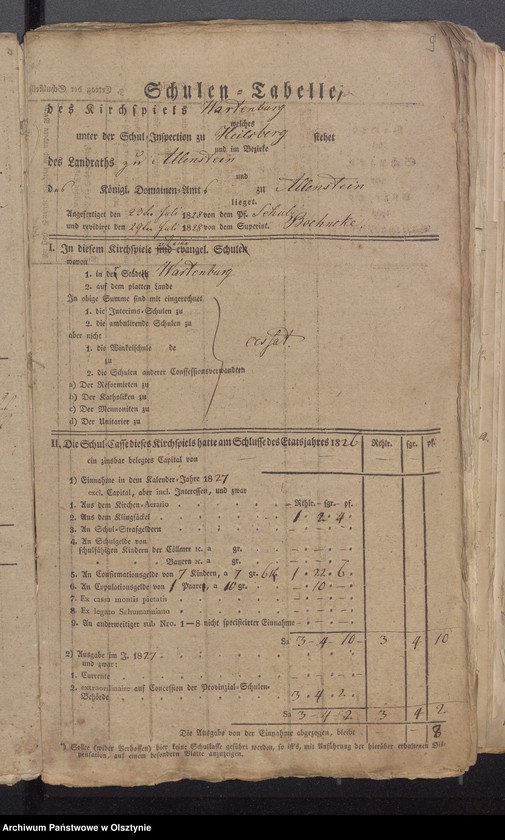 9
Schulen=Tabelle,
des Kirchspiels Wartenburg
welches
unter der Schul=Inspection zu Heilsberg stehet
und im Bezirke
des Landraths zu Allenstein
und
das Königl. Domainen=Amts zu Allenstein
lieget.
Angefertiget den 23ten Juli 1828 von dem Pf. Schulz
und revidiret den 29ten Juli 1828 von dem Superint.
I. In diesem Kirchspiele sind evangel. Schulen
wovon
1. in den Städten Wartenburg
2. auf dem platten Lande
In obige Summe sind mit eingerechnet
1. die Interims=Schulen zu
2. die ambulirende Schulen zu
aber nicht
1. die Winkelschule de
zu
2. die Schulen anderer Confessionsverwandten
a) Der Reformirten zu
b) Der Katholiken zu
c) Der Mennoniten zu
d) Der Unitarier zu
cessat.
II. Die Schul=Casse dieses Kirchspiels hatte am Schlusse des Etatsjahres 1826 Rthlr. sgr. pf.
ein zinsbar belegtes Capital von
1) Einnahme in dem Kalender=Jahre 1827
excl. Capital, aber incl. Interessen, und zwar
1. Aus dem Kirchen=Aerario — Rthlr. — sgr. — pf.
2. Aus dem Klingsäckel 1 2 4
3. An Schul=Strafgeldern
4. An Schulgelde von
schulfähigen Kindern der Cöllmer ꝛc. a gr.
Bauern ꝛc. a gr.
5. An Confirmationsgelde von 7 Kindern, a 7 gr. 1 22 6
6. An Copulationsgelde von 1 Paaren, a 10 gr. 10
7. Ex cassa montis pietatis
8. Ex legato Schumanniano
9. An anderweitiger sub Nro. 1—8 nicht specificirter Einnahme
Sa 3 4 10 3 4 10
2) Ausgabe im J. 1827
und zwar:
1. Currente
2. extraordinaire auf Concession der Provinzial=Schulen=
Behörde 3 4 2
Sa 3 4 2 3 4 2
Die Ausgabe von der Einnahme abgezogen, bleibt — — 8
*) Sollte (wider Verhoffen) hier keine Schulkasse geführt werden, so ist's, mit Anführung der hierüber erhaltenen Dis=
pensation, auf einem besondern Blatte anzuzeigen.
Archiwum Państwowe w Olsztynie